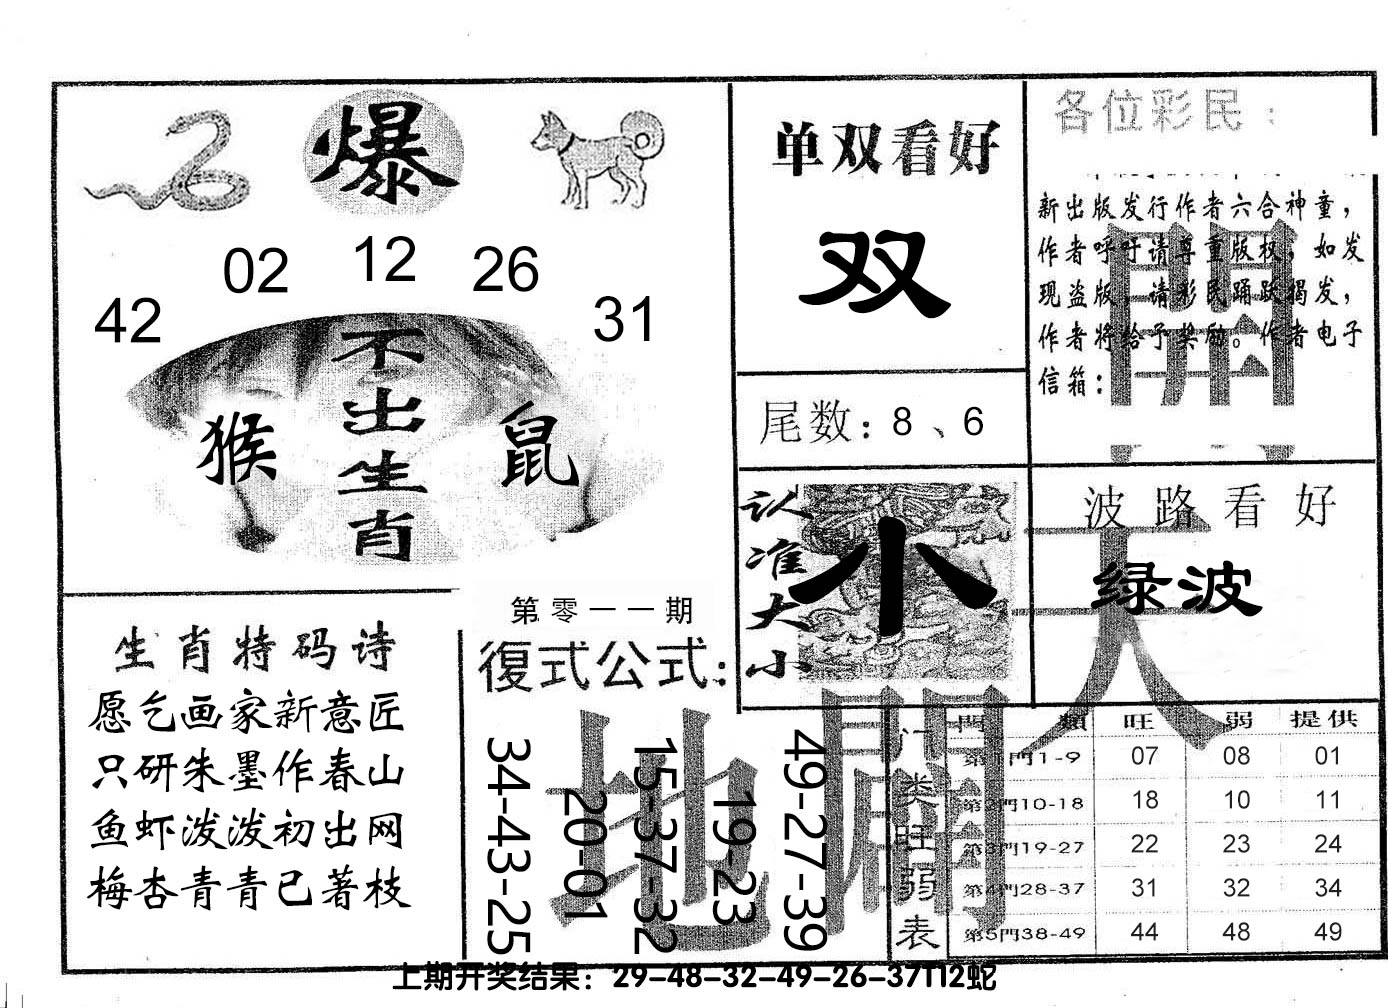 爆
02 12 26
42 31
不出生肖
猴 鼠
生肖特码诗
愿乞画家新意匠
只研朱墨作春山
鱼虾泼泼初出网
梅杏青青已著枝
单双看好
双
尾数：8、6
各位彩民：
新出版发行作者六合神童，
作者呼吁请尊重版权，如发
现盗版，请彩民踊跃揭发，
作者将给予奖励。作者电子
信箱：
认准大小
小
波路看好
绿波
第零一一期
復式公式：
34-43-25
20-01
15-37-32
19-23
49-27-39
天
地
開
门类旺弱表
門類 旺 弱 提供
第1門1-9 07 08 01
第2門10-18 18 10 11
第3門19-27 22 23 24
第4門28-37 31 32 34
第5門38-49 44 48 49
上期开奖结果：29-48-32-49-26-37T12蛇